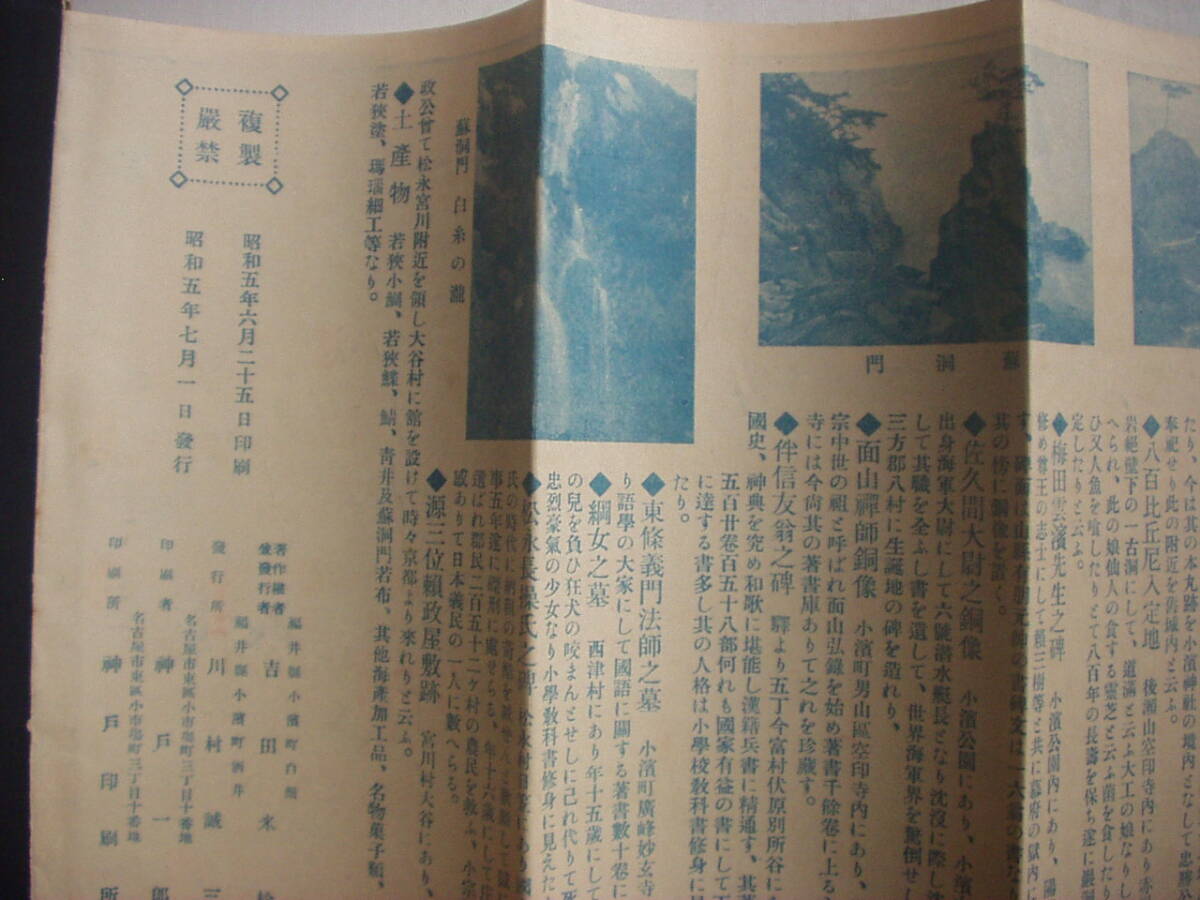 蘇洞門
たり、今は其の本丸跡を小濱神社の境內となして忠勝公
奉祀せり此の附近を舊城內と云ふ。
◆八百比丘尼入定地　後瀨山空印寺內にあり赤
岩絕壁下の一古洞にして、道滿と云ふ大工の娘なりし
へられ、此の娘仙人の食する靈芝と云ふ菌を食したり
ひ又人魚を喰したりとて八百年の長壽を保ち遂に巖洞
定したりと云ふ。
◆梅田雲濱先生之碑　小濱公園內にあり、陽
修め尊王の志士にして賴三樹等と共に幕府の獄內に
す、碑面は山縣有朋元帥の書碑文は
其の傍に銅像を置く。
◆佐久間大尉之銅像　小濱公園にあり、小濱
出身海軍大尉にして六號潛水艇長となり沈沒に際し沈
して其職を全ふし書を遺して、世界海軍界を驚倒せし
三方郡八村に生誕地の碑を造れり、
◆面山禪師銅像　小濱町男山區空印寺內にあり、
宗中世の祖と呼ばれ面山弘錄を始め著書千餘卷に上る
寺には今尙其の著書庫ありて之れを珍藏す。
◆伴信友翁之碑　驛より五丁今富村伏原別所谷に
國史、神典を究め和歌に堪能し漢籍兵書に精通す、其著
五百廿卷百五十八部何れも國家有益の書にして
に達する書多し其の人格は小學校敎科書修身に
たり。
◆東條義門法師之墓　小濱町廣峰妙玄寺
り語學の大家にして國語に關する著書數十卷に
◆綱女之墓　西津村にあり年十五歲にして
の兒を負ひ狂犬の咬まんとせしに己れ代りて死
忠烈豪氣の少女なり小學敎科書修身に見えたり
◆松永長操氏之碑　松永村
氏の時代に納租の苛酷を
事五年遂に磔刑に處せらる、年十六歲にして庄
選ばれ郡民二百五十二ケ村の農民を救ふ、小宗
感ありて日本義民の一人に數へらる。
◆源三位賴政屋敷跡　宮川村大谷にあり、
蘇洞門　白糸の瀧
政公曾て松永宮川附近を領し大谷村に館を設けて時々京都より來れりと云ふ。
◆土產物　若狹小鯛、若狹鰈、鯖、靑井及蘇洞門若布、其他海產加工品、名物菓子類、
若狹塗、瑪瑙細工等なり。
複製
嚴禁
昭和五年六月二十五日印刷
昭和五年七月一日發行
福井縣小濱町白鬚
著作權者
兼發行者　吉田米
福井縣小濱町酒井
發行所　川村誠三
名古屋市東區小市場町三丁目十番地
印刷者　神戶一郎
名古屋市東區小市場町三丁目十番地
印刷所　神戶印刷所